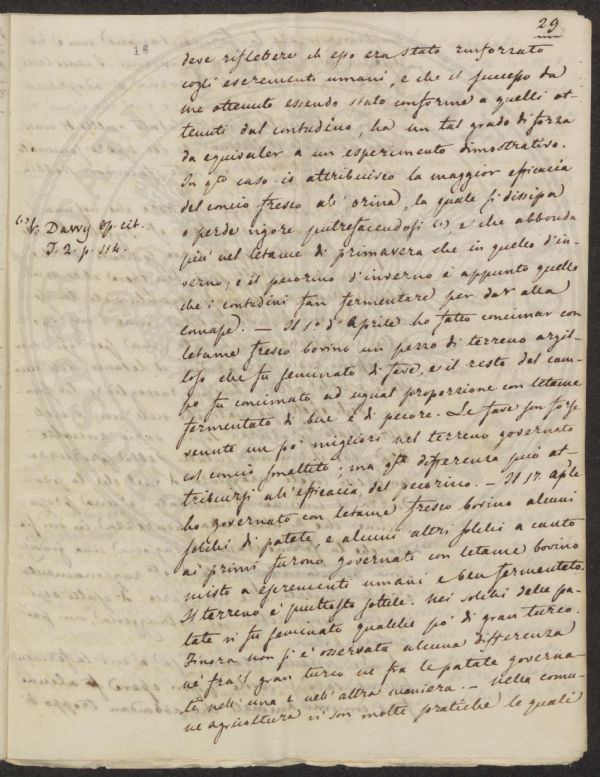 29
18
deve riflettere ch'esso era stato rinforzato
cogli escrementi umani, e che il successo da
me ottenuto essendo stato conforme a quelli ot-
tenuti dal contadino, ha un tal grado di forza
da equivaler a un esperimento dimostrativo.
In q.to caso io attribuisco la maggior efficacia
del concio fresco all'orina, la quale si dissipa
o perde vigore putrefacendosi (1) e che abbonda
(1) V. Davvy Op. cit.
T. 2. p. 114.
più nel letame di primavera che in quello d'in-
verno; e il pecorino d'inverno è appunto quello
che i contadini fan fermentare per dar alla
canape. — Il 1.o d'Aprile ho fatto concimar con
letame fresco bovino un pezzo di terreno argil-
loso che fu seminato di fave, e il resto del cam-
po fu concimato ad egual proporzione con letame
fermentato di bue e di pecore. Le fave son forse
venute un po' migliori nel terreno governato
col concio smaltito; ma q.sta differenza può at-
tribuirsi all'efficacia del pecorino. — Il 17. Aple
ho governato con letame fresco bovino alcuni
solchi di patate, e alcuni altri solchi a canto
ai primi furono governati con letame bovino
misto a escrementi umani e ben fermentato.
Il terreno è piuttosto sottile. Nei solchi delle pa-
tate vi fu seminato qualche po' di gran turco.
Finora non si è osservata alcuna differenza
nè fra'l gran turco nè fra le patate governa-
te nell'una e nell'altra maniera. — Nella comu-
ne agricoltura vi son molte pratiche le quali